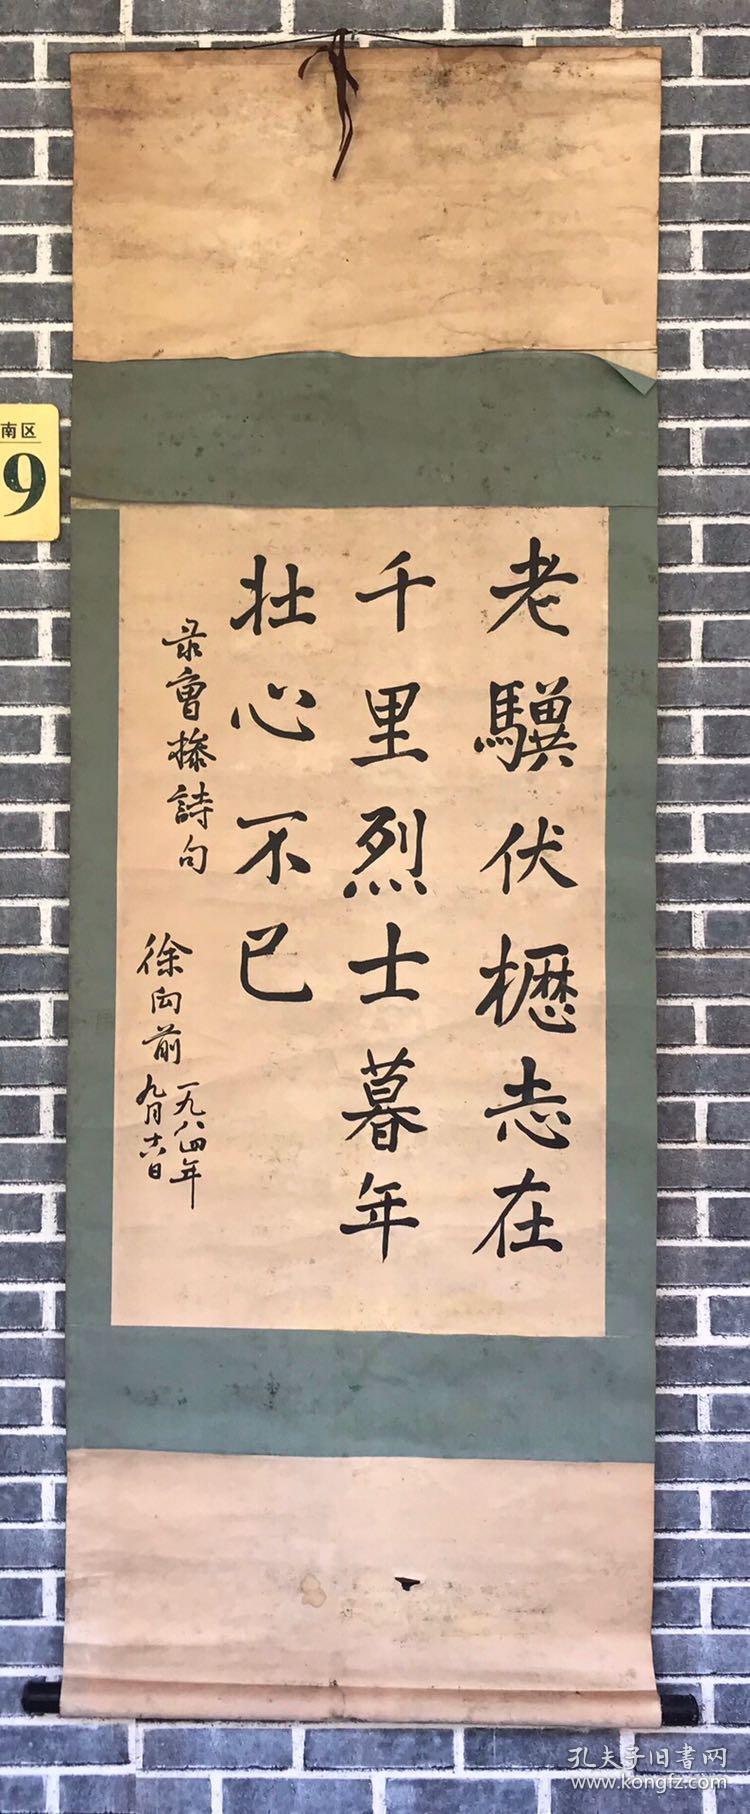 老驥伏櫪志在
千里烈士暮年
壮心不已
录曹操詩句
徐向前
一九八四年
九月十六日
南区
9
孔夫子旧書网
www.kongfz.com